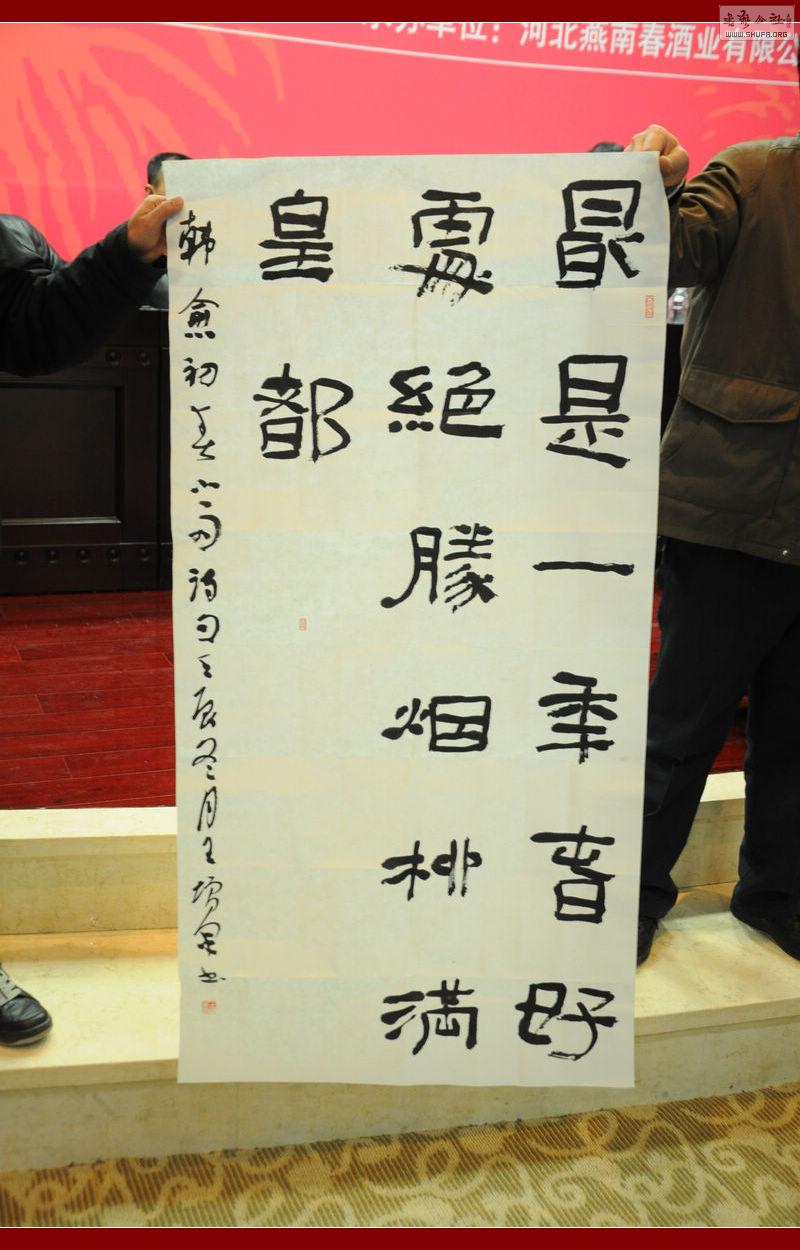 办单位：河北燕南春酒业有限公
書藝公社
WWW.SHUFA.ORG
最是一年春好
處絕勝烟柳滿
皇都
韓愈初春小雨詩句壬辰冬月王书